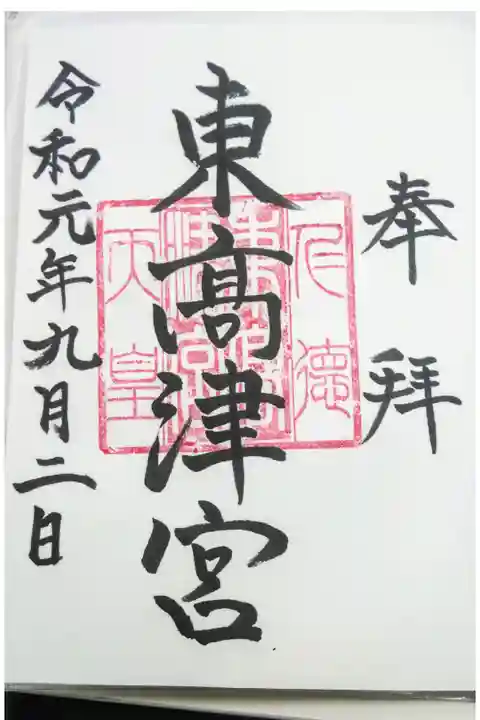 奉拝
東髙津宮
仁徳
天皇
令和元年九月二日